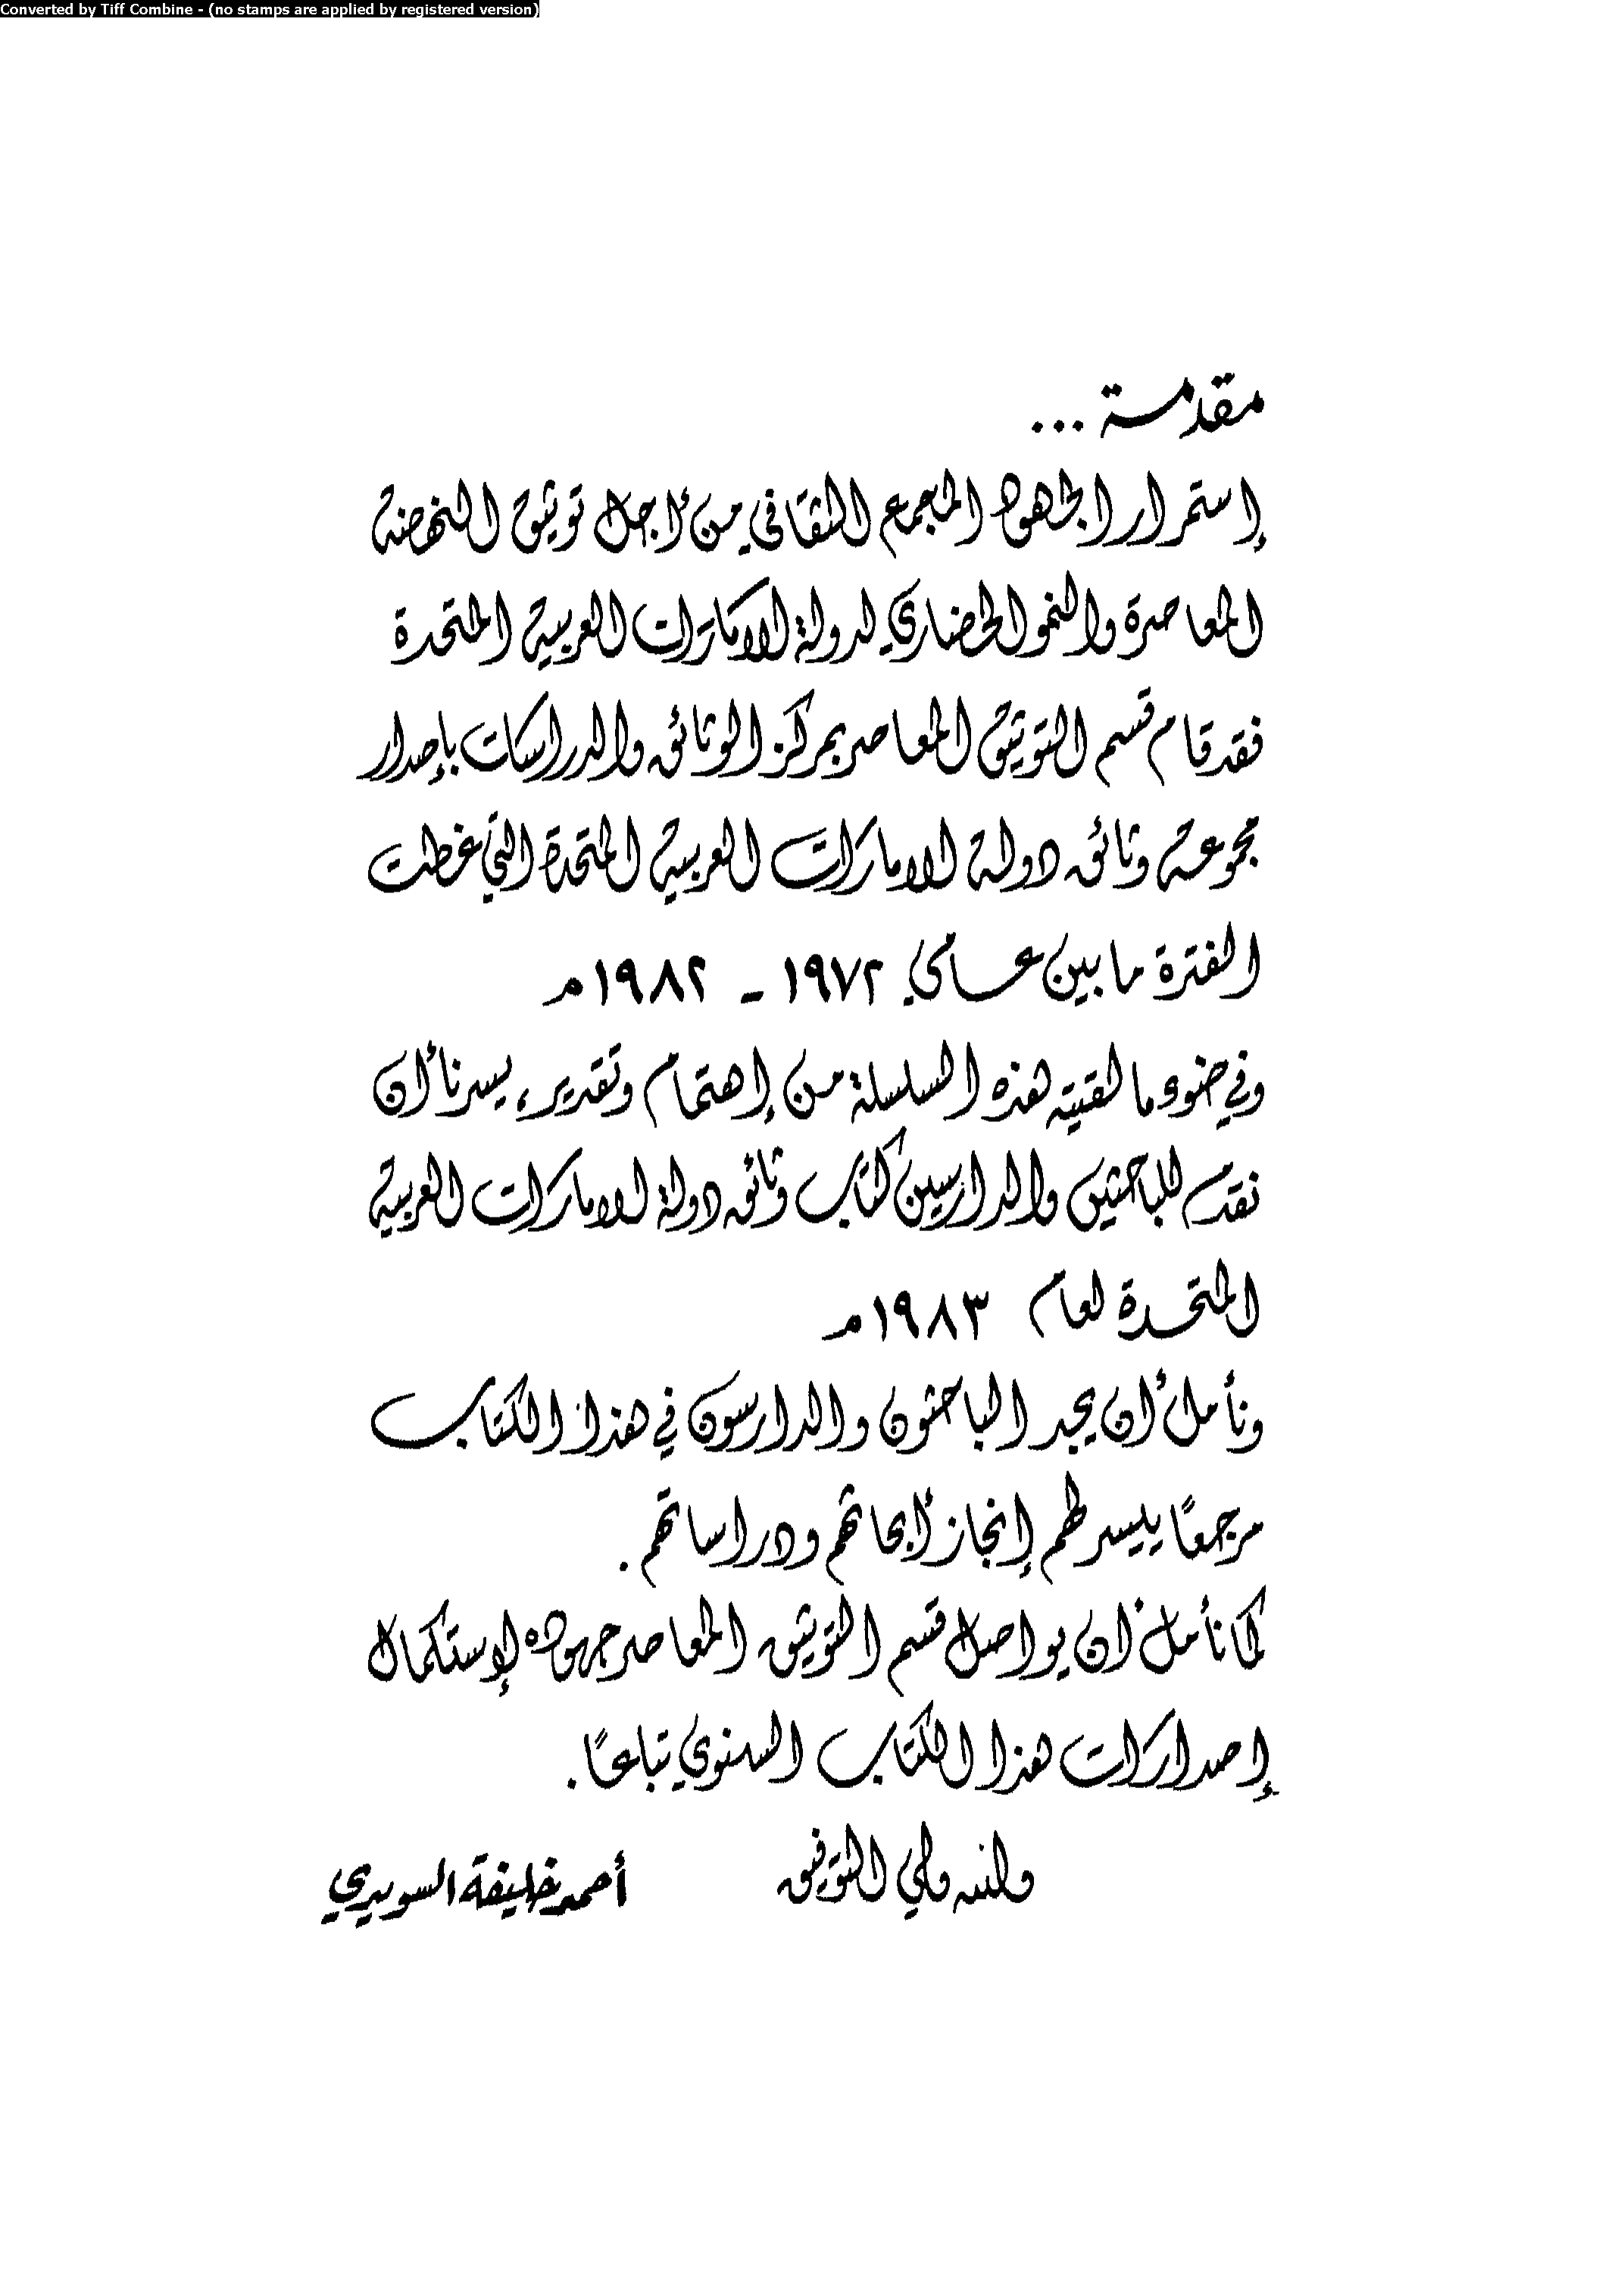 Converted by Tiff Combine - (no stamps are applied by registered version)
مقدمة ...
إستمراراً لجهود المجمع الثقافي من أجل توثيق النهضة
المعاصرة والنمو الحضاري لدولة الامارات العربية المتحدة
فقد قام قسم التوثيق المعاصر بمركز الوثائق والدراسات بإصدار
مجموعة وثائق دولة الامارات العربية المتحدة التي غطت
الفترة ما بين عامي ١٩٧٢ - ١٩٨٢م
وفي ضوء ما لقيته هذه السلسلة من إهتمام وتقدير، يسرنا أن
نقدم للباحثين والدارسين كتاب وثائق دولة الامارات العربية
المتحدة لعام ١٩٨٣م
ونأمل أن يجد الباحثون والدارسون في هذا الكتاب
مرجعًا ييسر لهم إنجاز أبحاثهم ودراساتهم .
كما نأمل أن يواصل قسم التوثيق المعاصر جهوده لإستكمال
إصدارات هذا الكتاب السنوي تباعًا .
والله ولي التوفيق
أحمد خليفة السويدي